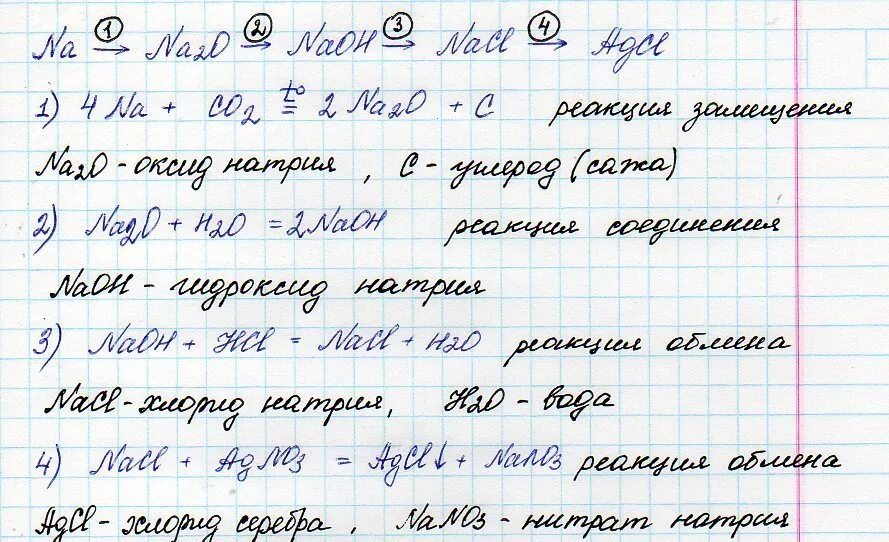 Na ①→ Na2O ②→ NaOH ③→ NaCl ④→ AgCl
1) 4 Na + CO2 t°= 2 Na2O + C реакция замещения
Na2O - оксид натрия, C - углерод (сажа)
2) Na2O + H2O = 2NaOH реакция соединения
NaOH - гидроксид натрия
3) NaOH + HCl = NaCl + H2O реакция обмена
NaCl - хлорид натрия, H2O - вода
4) NaCl + AgNO3 = AgCl↓ + NaNO3 реакция обмена
AgCl - хлорид серебра, NaNO3 - нитрат натрия